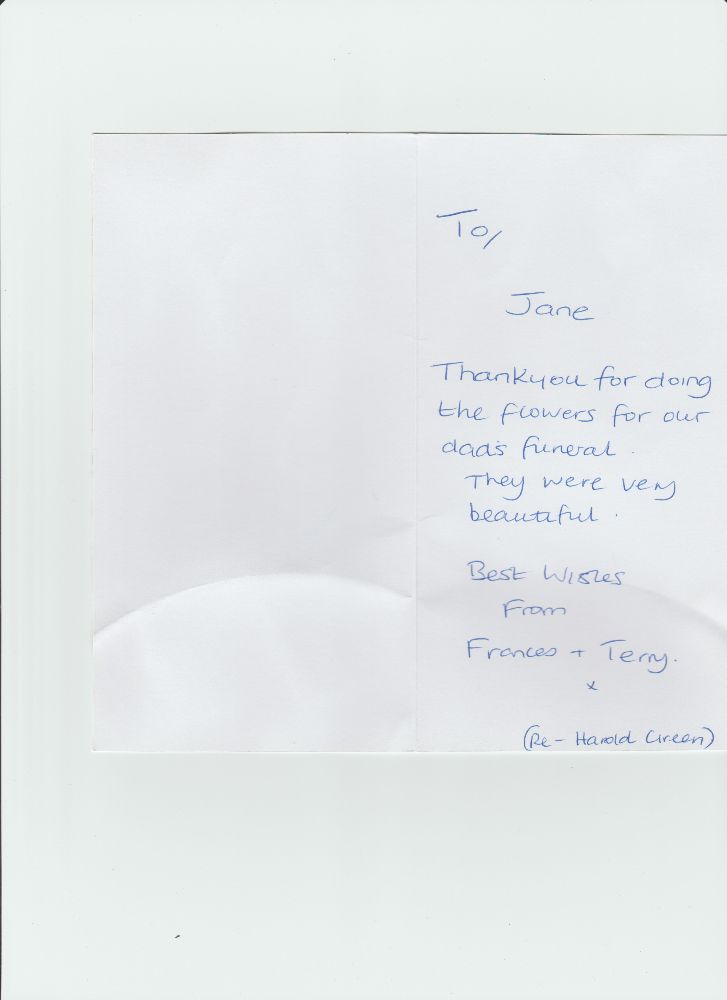 To/
Jane
Thankyou for doing
the flowers for our
dad's funeral.
They were very
beautiful.
Best Wishes
From
Frances + Terry.
x
(Re - Harold Green)